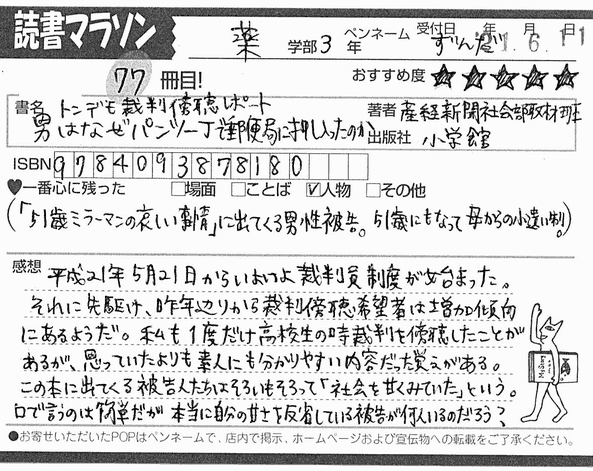 読書マラソン
薬 学部 3 年 ペンネーム ずんだ 受付日 年 月 日
21.6.11
77 冊目! おすすめ度 ★★★★★
書名 トンデモ裁判傍聴レポート
男はなぜパンツ一丁で郵便局に押し入ったのか
著者 産経新聞社会部取材班
出版社 小学館
ISBN 9784093878180
♥一番心に残った □場面 □ことば ☑人物 □その他
(「51歳ミラーマンの哀しい事情」に出てくる男性被告。51歳にもなって母からの小遣い制。)
感想 平成21年5月21日からいよいよ裁判員制度が始まった。
それに先駆け、昨年辺りから裁判傍聴希望者は増加傾向
にあるようだ。私も1度だけ高校生の時裁判を傍聴したことが
あるが、思っていたよりも素人にも分かりやすい内容だった覚えがある。
この本に出てくる被告人たちはそろいもそろって「社会を甘くみていた」という。
口で言うのは簡単だが本当に自分の甘さを反省している被告が何人いるのだろう?
●お寄せいただいたPOPはペンネームで、店内で掲示、ホームページおよび宣伝物への転載をご了承ください。